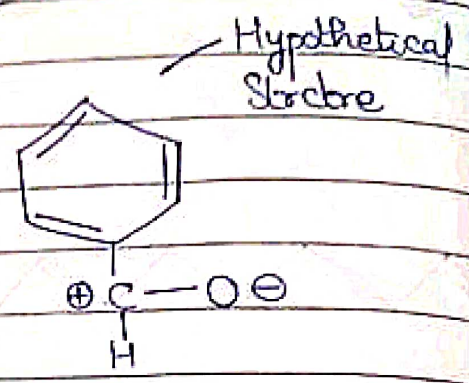 Hypothetical
Strctore
⊕ C — O ⊖
H